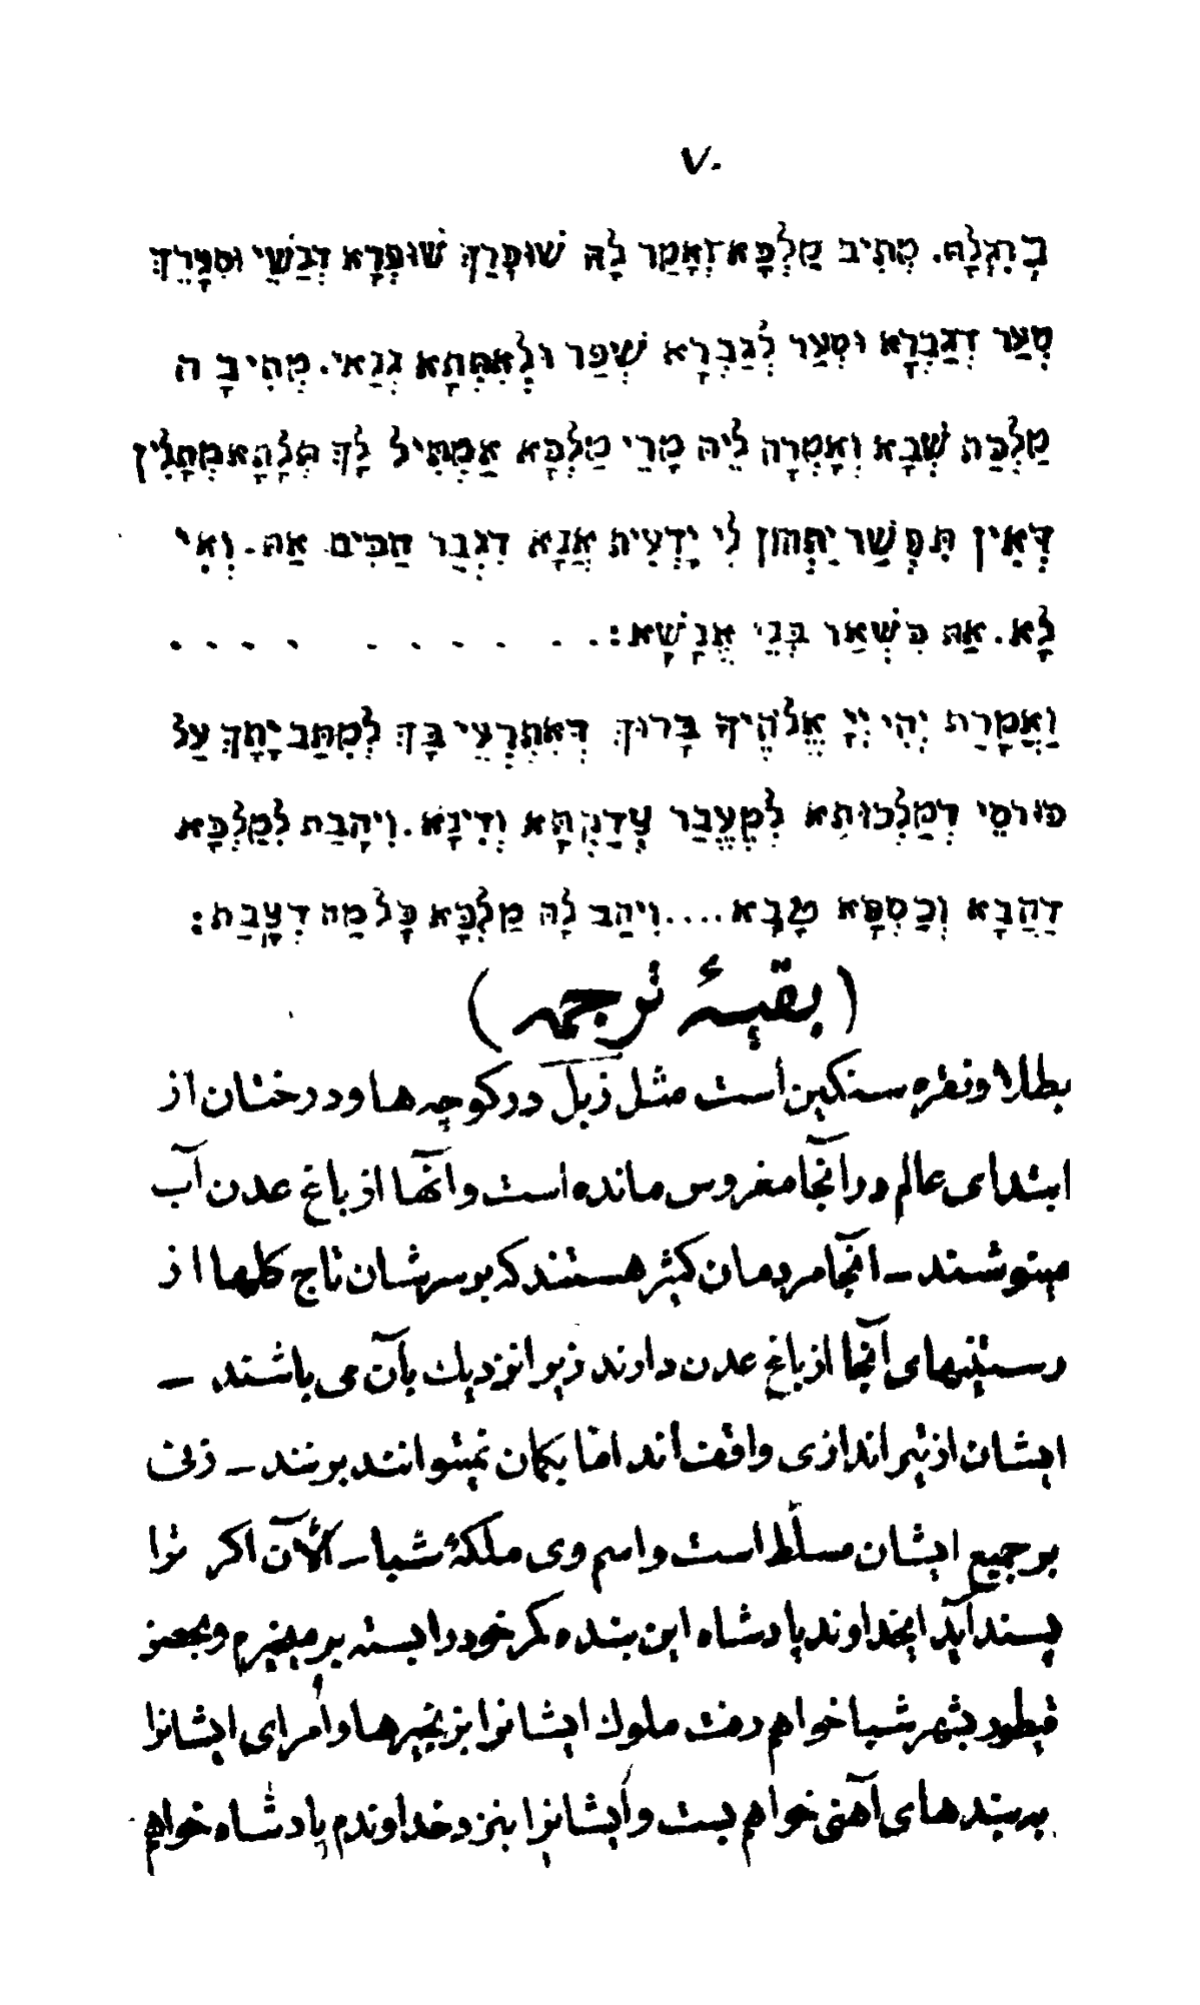 ٧٠
בְרִגְלָהּ. מְתִיב מַלְכָּא וְאָמַר לָהּ שׁוּפְרַךְ שׁוּפְרָא דְנַשֵׁי וּסְעָרֵךְ
סְעַר דְגַבְרָא וּסְעַר לְגַבְרָא שְׁפַר וּלְאִתְּתָא גְנַאי. מְתִיבָה
מַלְכַּת שְׁבָא וְאָמְרָה לֵיהּ מָרֵי מַלְכָּא אַמְתִּיל לָךְ תְּלָתָא מְתָלִין
דְּאִין תִּפְשַׁר יַתְהוֹן לִי יָדְעִית אֲנָא דִגְבַר חַכִּים אַתְּ. וְאִי
לָא. אַתְּ כִּשְׁאַר בְּנֵי אֱנָשָׁא: . . . . . . . . . .
וַאֲמָרַת יְהִי יְיָ אֱלֹהֶיךָ בָּרוּךְ דְּאִתְרְעֵי בָּךְ לְמִתַּב יָתָךְ עַל
כּוּרְסֵי דְמַלְכוּתָא לְמֶעֱבַר צְדַקְתָּא וְדִינָא. וִיהָבַת לְמַלְכָּא
דַהֲבָא וְכַסְפָּא טָבָא.... וִיהַב לָהּ מַלְכָּא כָּל מַה דְצָבַת:
(بقیهٔ ترجمه)
بطلا و نقره سنکین است مثل زبل در کوچه ها و درختان از
ابتدای عالم در آنجا مغروس مانده است و آنها از باغ عدن آب
مینوشند ــ آنجا مردمان کثیر هستند که بر سرشان تاج کلها از
رستنیهای آنجا از باغ عدن دارند زیرا نزدیك بآن می باشند ــ
ایشان از تیر اندازی واقف اند امّا بکمان نمیتوانند بزنند ــ زنی
بر جمیع ایشان مسلّط است و اسم وی ملکهٔ شبا ــ الآن اکر ترا
پسند آید ایخداوند پادشاه این بنده کمر خود را بسته بر میخیزم و بحصن
قیطور بشهر شبا خواهم رفت ملوك ایشانرا بزنجیرها و اُمرای ایشانرا
ببندهای آهنی خواهم بست و ایشانرا بنزد خداوندم پادشاه خواهم